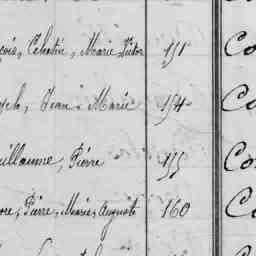 çois, Célestin, Marie, Victor 151 Co
seph, Jean-Marie 154 Co
uillaume, Pierre 155 Co
ore, Pierre, Marie, Auguste 160 Co